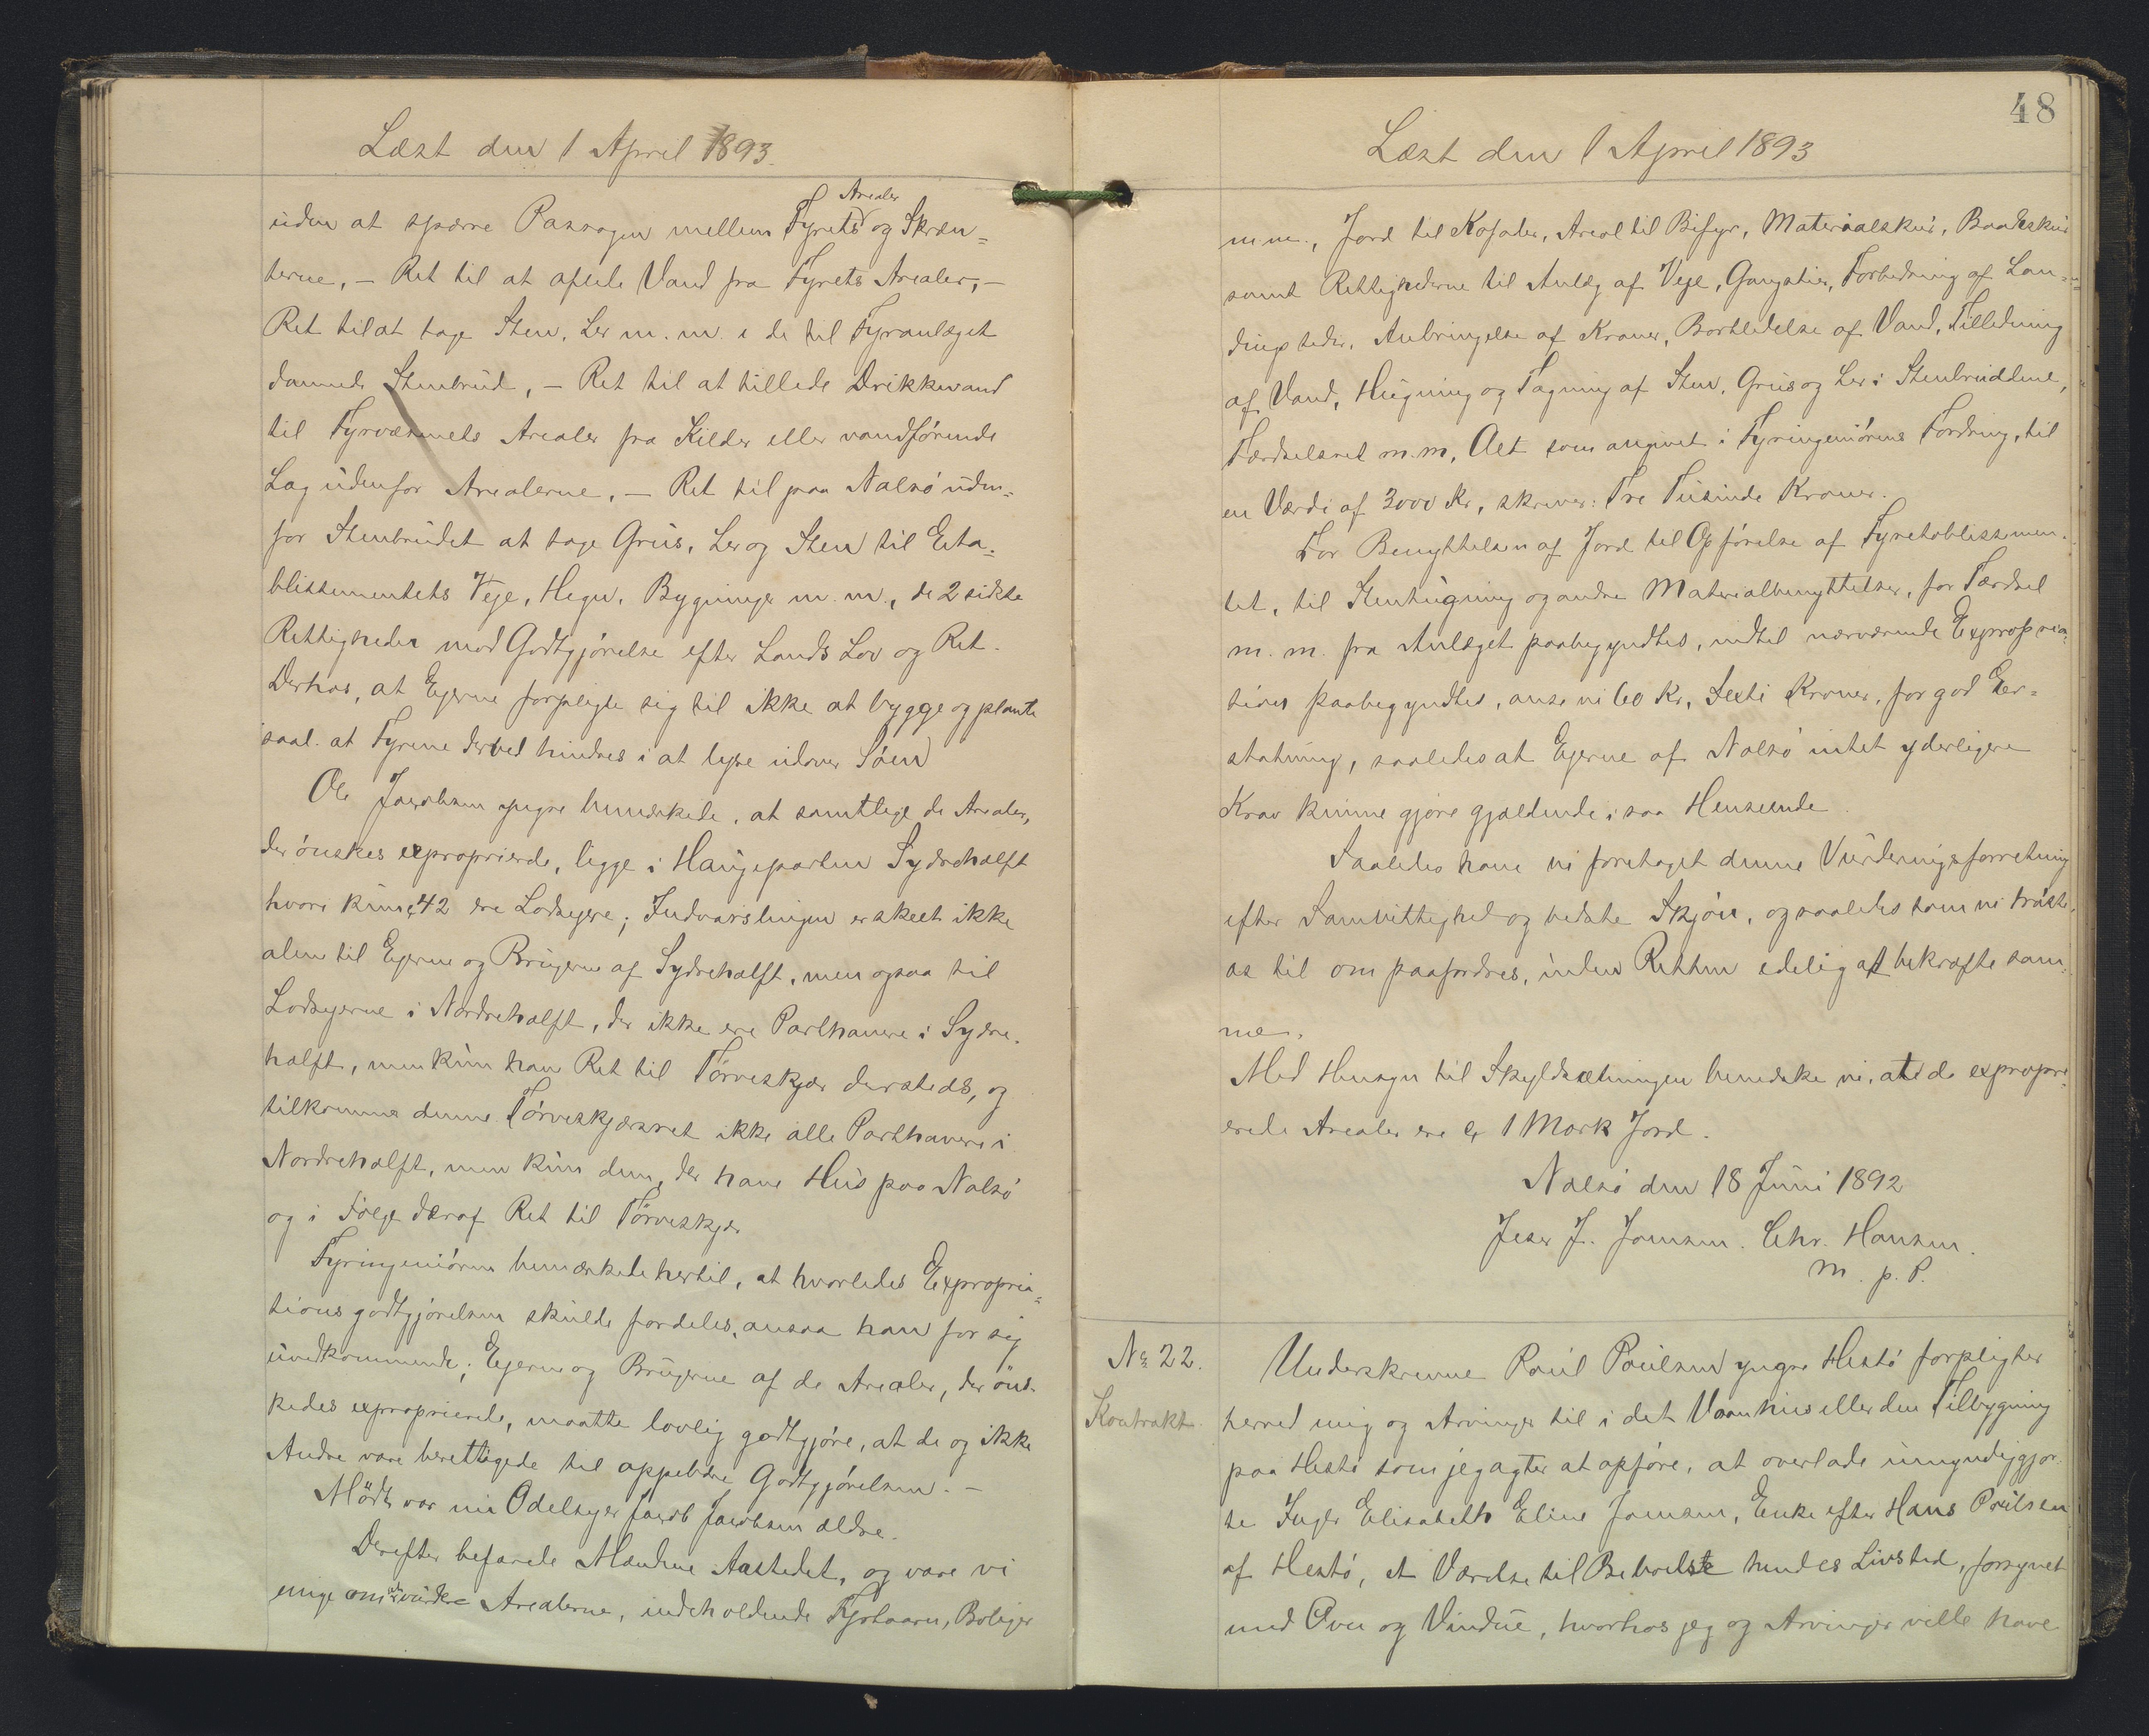 Læst den 1 April 1893.
uden at spærre Passagen mellem Fyrets Arealer og Skræn-
terne, – Ret til at aflede Vand fra Fyrets Arealer, –
Ret til at tage Sten, Ler m. m. i de til Fyranlæget
dannede Stenbrud, – Ret til at tillede Drikkevand
til Fyrvæsenets Arealer fra Kilder eller vandførende
Lag udenfor Arealerne, – Ret til paa Nalsø uden-
for Stenbrudet at tage Grus, Ler og Sten til Eta-
blissementets Veje, Hegn, Bygninger m. m., de 2 sidste
Rettigheder mod Godtgjørelse efter Lands Lov og Ret.
Derhos, at Ejerne forpligte sig til ikke at bygge og plante
saal. at Fyrene derved hindres i at lyse udover Søen
Ole Jacobsen yngre bemærkede, at samtlige de Arealer,
der ønskes exproprierede, ligge i Haugeparten Sydrehalft
hvori kun 42 ere Lodsejere; Indvarslingen er skeet ikke
alene til Ejerne og Brugerne af Sydrehalft, men ogsaa til
Lodsejerne i Nordrehalft, der ikke ere Parthavere i Sydre-
halft, men kun have Ret til Tørveskjær dersteds, og
tilkommer denne Tørveskjærsret ikke alle Parthavere i
Nordrehalft, men kun dem, der have Hus paa Nalsø
og i Følge deraf Ret til Tørveskjær
Fyringeniøren bemærkede hertil, at hvorledes Expropria-
tionsgodtgjørelsen skulde fordeles, ansaa han for sig
uvedkommende; Ejerne og Brugerne af de Arealer, der øns-
kedes exproprierede, maatte lovlig godtgjøre, at de og ikke
Andre vare berettigede til oppebære Godtgjørelsen. –
Mødt var nu Odelsejer Jacob Jacobsen ældre.
Derefter befarede Mændene Aastedet, og vare vi
enige om at vurdere Arealerne, indeholdende Fyrtaarn, Boliger
48
Læst den 1 April 1893
m.m., Jord til Kofoder, Areal til Bifyr, Materialskur, Baadeskur
samt Rettighederne til Anlæg af Veje, Gangstier, Forbedring af Lan-
dingssteder, Anbringelse af Kraner, Bortledelse af Vand, Tilledning
af Vand, Hugning og Tagning af Sten, Grus og Ler i Stenbruddene,
Færdselsret m.m, Alt som angivet i Fyringeniørens Fordring, til
en Værdi af 3000 Kr, skriver: Tre Tusinde Kroner.
For Benyttelsen af Jord til Opførelse af Fyretablissemen-
tet, til Stenhugning og andre Materialbenyttelser, for Færdsel
m. m. fra Anlæget paabegyndtes, indtil nærværende Expropria-
tion paabegyndtes, anse vi 60 Kr, Sexti Kroner, for god Er-
statning, saaledes at Ejerne af Nalsø intet yderligere
Krav kunne gjøre gjældende i saa Henseende.
Saaledes have vi foretaget denne Vurderingsforretning
efter Samvittighed og bedste Skjøn, og saaledes som vi trøste
os til om paafordres, inden Retten edelig at bekræfte sam-
me.
Med Hensyn til Skyldsætningen bemærke vi, at de expropri-
erede Arealer ere 1 Mark Jord.
Nalsø den 18 Juni 1892
J. Joensen. Chr. Hansen.
m. p. P.
No 22.
Kontrakt.
Underskrevne Poul Poulsen yngre Hestø forpligter
herved mig og Arvinger til i det Vaanhus eller den Tilbygning
paa Hestø som jeg agter at opføre, at overlade umyndiggjor-
te Inger Elisabeth Eline Joensen, Enke efter Hans Poulsen
af Hestø, et Værelse til Beboelse hendes Livstid, forsynet
med Ovn og Vindue, hvorhos jeg og Arvinger ville have